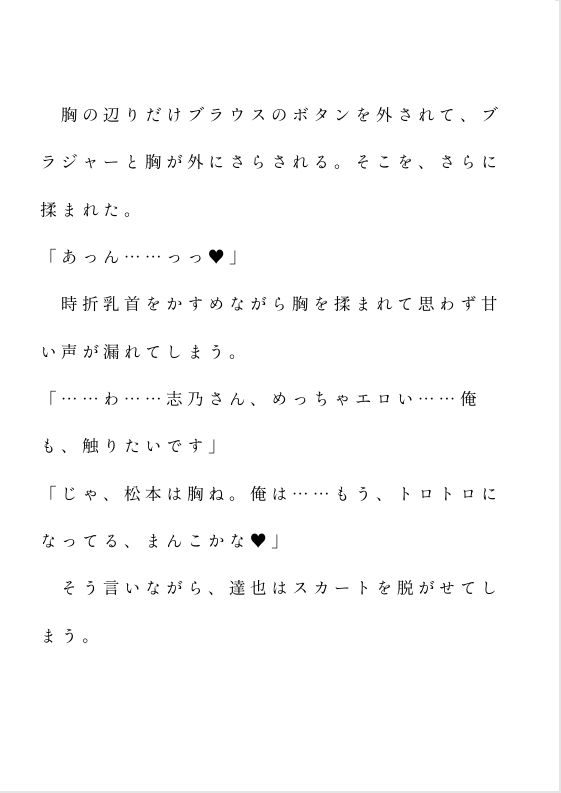 胸の辺りだけブラウスのボタンを外されて、ブ
ラジャーと胸が外にさらされる。そこを、さらに
揉まれた。
「あっん……っっ♥」
　時折乳首をかすめながら胸を揉まれて思わず甘
い声が漏れてしまう。
「……わ……志乃さん、めっちゃエロい……俺
も、触りたいです」
「じゃ、松本は胸ね。俺は……もう、トロトロに
なってる、まんこかな♥」
　そう言いながら、達也はスカートを脱がせてし
まう。